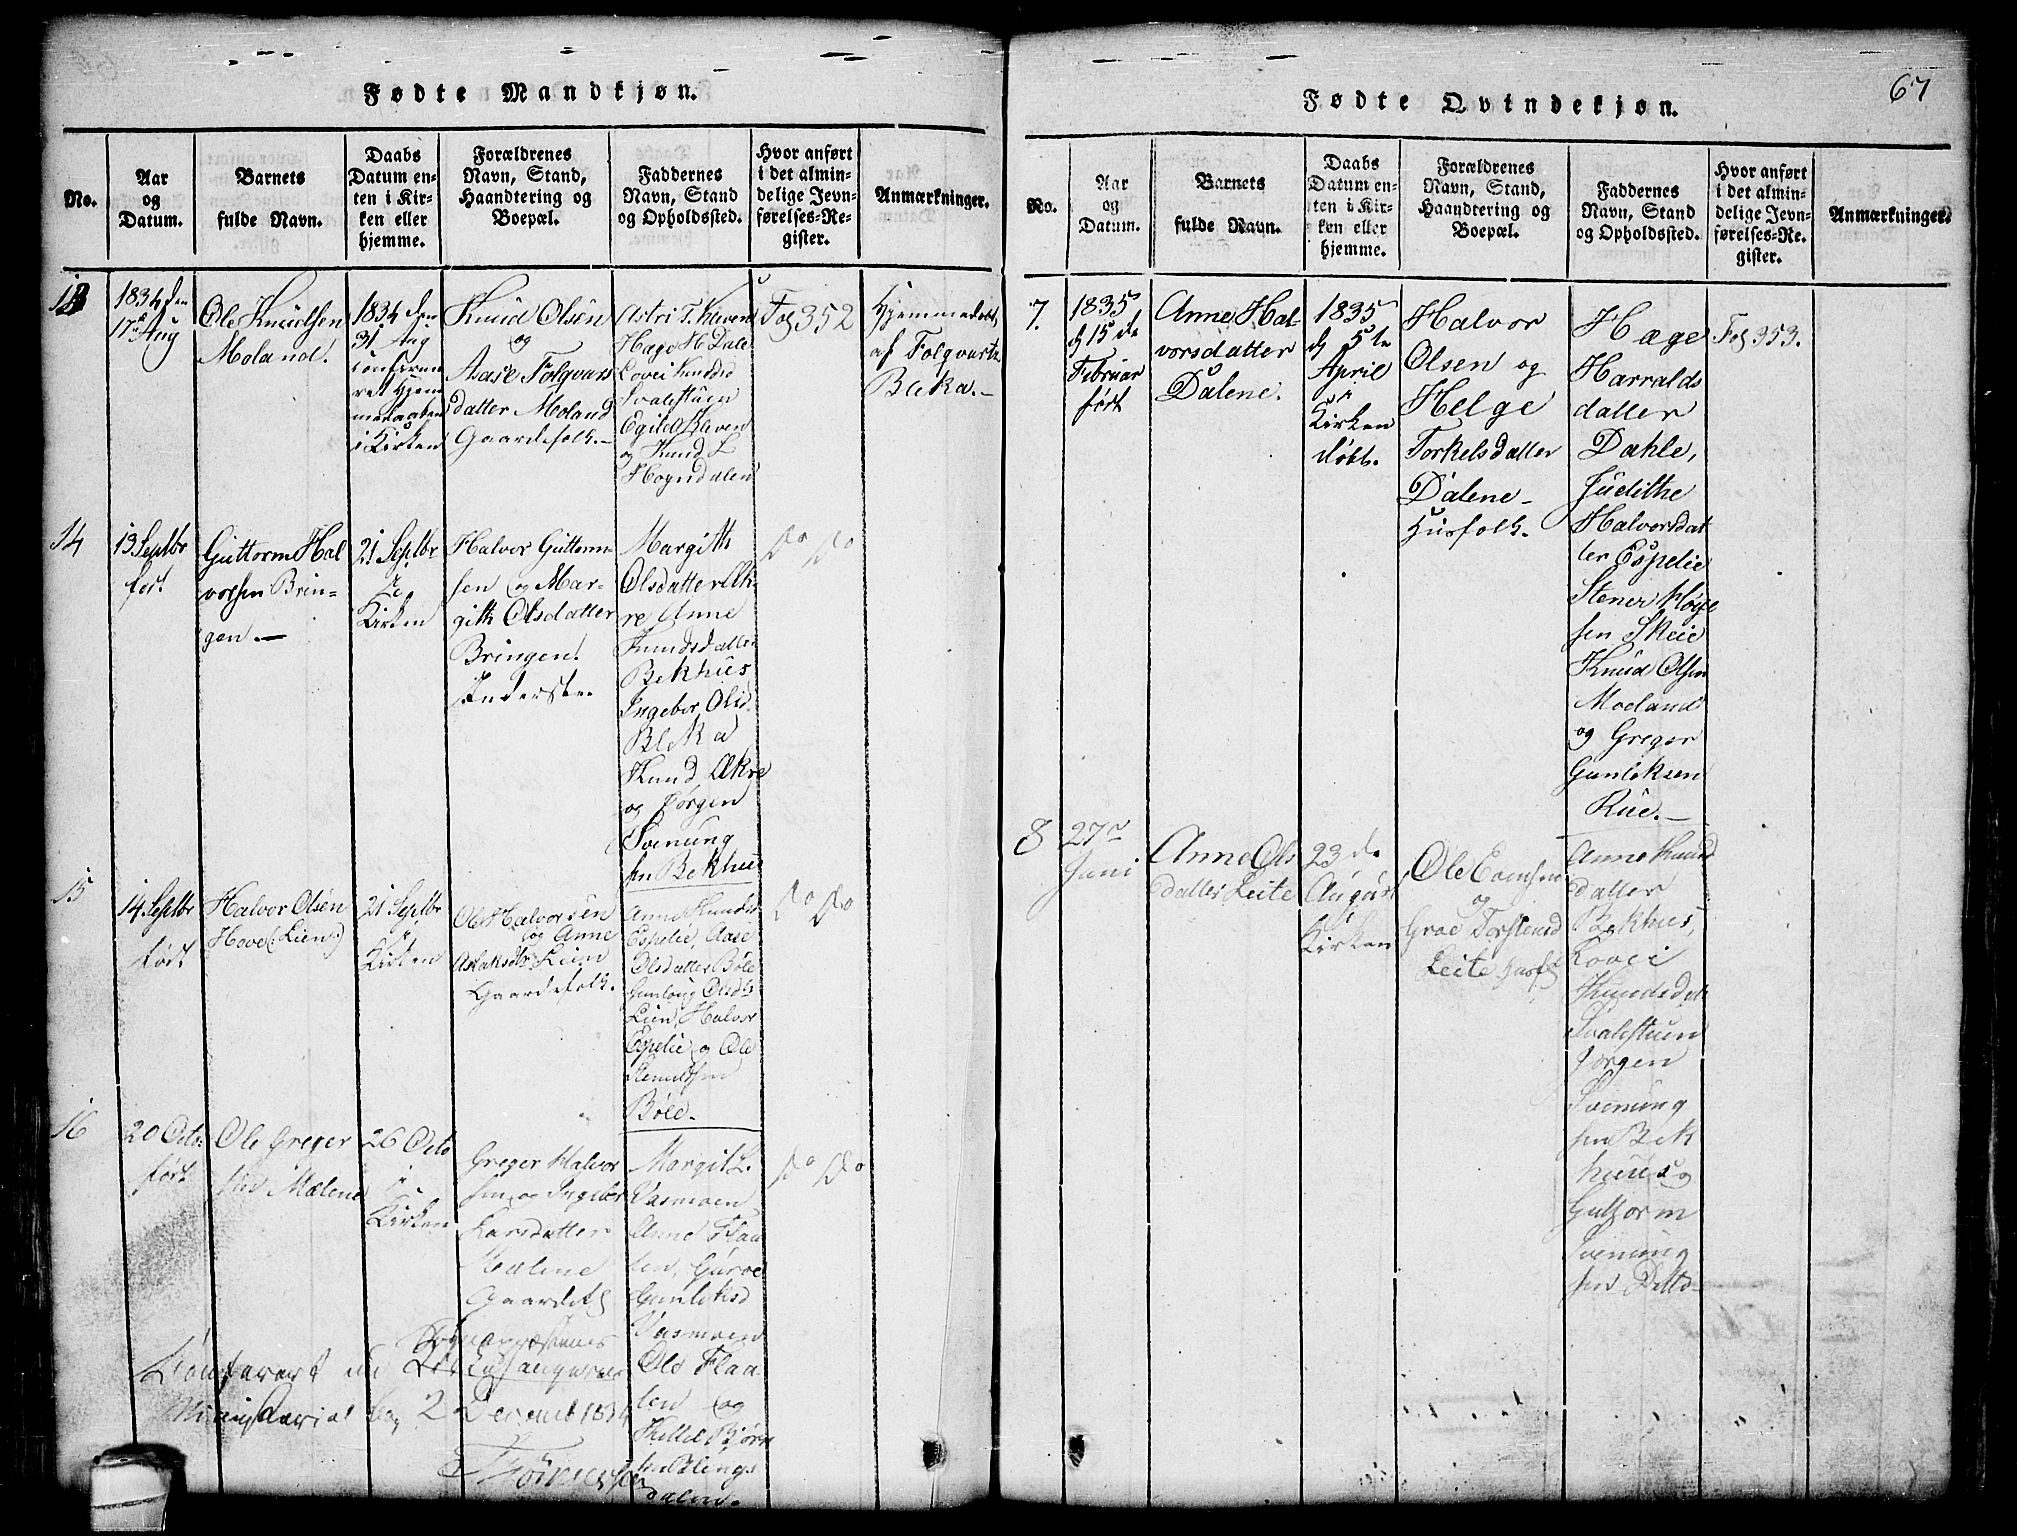 Fødte Mandkjøn.
No.
Aar
og
Datum.
Barnets
fulde Navn.
Daabs
Datum en-
ten i Kir-
ken eller
hjemme.
Forældrenes
Navn, Stand,
Haandtering og
Boepæl.
Faddernes
Navn, Stand
og Opholdssted.
Hvor anført
i det almin-
delige Jevn-
førelses-Re-
gister.
Anmærkninger.
13
1834 den
17de Aug
Ole Knudsen
Moland.
1834 den
31 Aug
confirme-
ret Hjem-
medaaben
i Kirken
Knud Olsen
og
Aase Folqvars
datter Moland
Gaardefolk.-
Astri T. Kleven
Hage H Dale
Lovei Knudsd
Svalestuen
Egild A Kleven
og Knud L
Hogndalen
Fol 352
Hjemmedøbt
af Folqvart
Bleka.-
14
13 Septbr
fød.
Guttorm Hal
vorsen Brin-
gen.-
21 Septbr
i
Kirken
Halvor Guttorm-
sen og Mar-
gith Olsdatter
Bringen.
Inderste.
Margith
Olsdatter Ak-
re Anne
Knudsdatter
Bekhus
Ingebor Olsd.
Bleka
Knud Akre
og Jørgen
Svenung
sen Bekhus
Do Do
15
14 Septbr
født
Halvor Olsen
Hove (: Lien:)
21 Septbr
i
Kirken
Ole Halvorsen
og Anne
Aslaksdtr Lien
Gaardefolk.
Anne Knudsd
Espelie, Aase
Olsdatter Bøle
Gunloug Olsdtr
Lien, Halvor
Espelie og Ole
Bøle.
Do Do
16
20 Octo:
født
Ole Greger
sen Mælene
26 Octo
i
Kirken
Greger Halvor
sen og Ingebor
Larsdatter
Mælene
Gaardef
Margit L.
Vasmoen
Anne Flaa
ten, Guroe
Gunleksd
Vasmoen
Ole Flaa
ten og
Kittel Bjørn
sen Blengs
dalen.
Do Do
Sognepræstens
Conferert
Ministerial
2 December 1834
Fødte Qvindekjøn.
67
No.
Aar
og
Datum.
Barnets
fulde Navn.
Daabs
Datum en-
ten i Kir-
ken eller
hjemme.
Forældrenes
Navn, Stand,
Haandtering og
Boepæl.
Faddernes
Navn, Stand
og Opholdssted.
Hvor anført
i det almin-
delige Jevn-
førelses-Re-
gister.
Anmærkninger.
7.
1835
d 15 de
Februar
født
Anne Hal-
vorsdatter
Dalene.
1835
d 5 te
April
i
Kirken
døbt.
Halvor
Olsen og
Helge
Torkelsdatter
Dalene-
Husfolk.
Hæge
Harralds
datter
Dahle,
Judithe
Halvorsdat
ter Espelie
Stener Høye
sen Skeie
Knud Olsen
Moeland
og Greger
Gunleksen
Rue.-
Fol 353.
8
27de
Juni
Anne Ols
datter Leite
23 de
August
i
Kirken
Ole Evensen
og
Groe Torstensd
Leite Husf
Anne Knud
datter
Bekhus,
Lovei
Knudsdat
Svalestuen
Jørgen
Svenung
sen Bek
huus og
Guttorm
Svenung
sen Ditto-